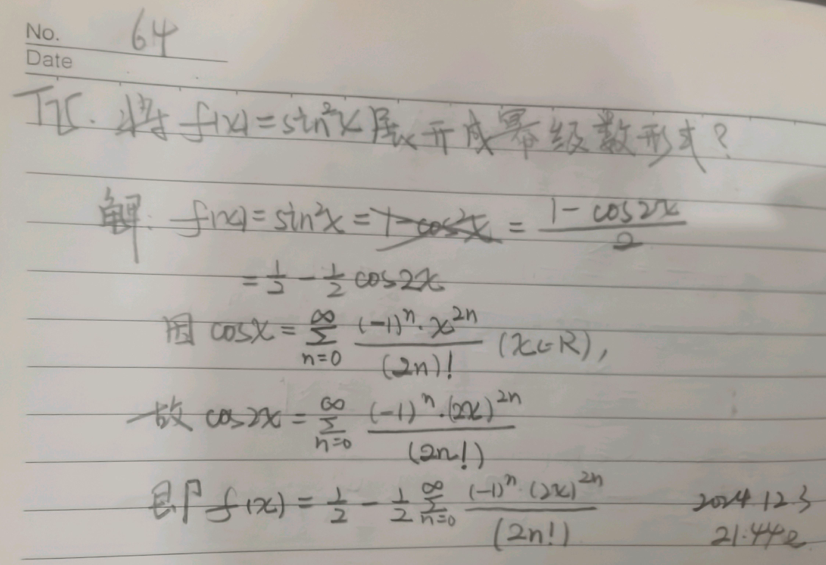 No. 64
Date
TX. 将 f(x)=sin²x 展开成幂级数形式?
解: f(x)=sin²x=1-cos²x=(1-cos2x)/2
=1/2-1/2 cos2x
因 cosx=∑_{n=0}^{∞} ((-1)^n·x^{2n})/(2n)! (x∈R),
故 cos2x=∑_{n=0}^{∞} ((-1)^n·(2x)^{2n})/(2n!)
即 f(x)=1/2-1/2 ∑_{n=0}^{∞} ((-1)^n·(2x)^{2n})/(2n!)
2024.12.3
21.44